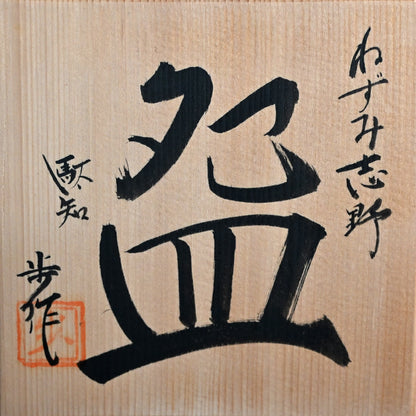 ねずみ志野
盌
駄知
歩作